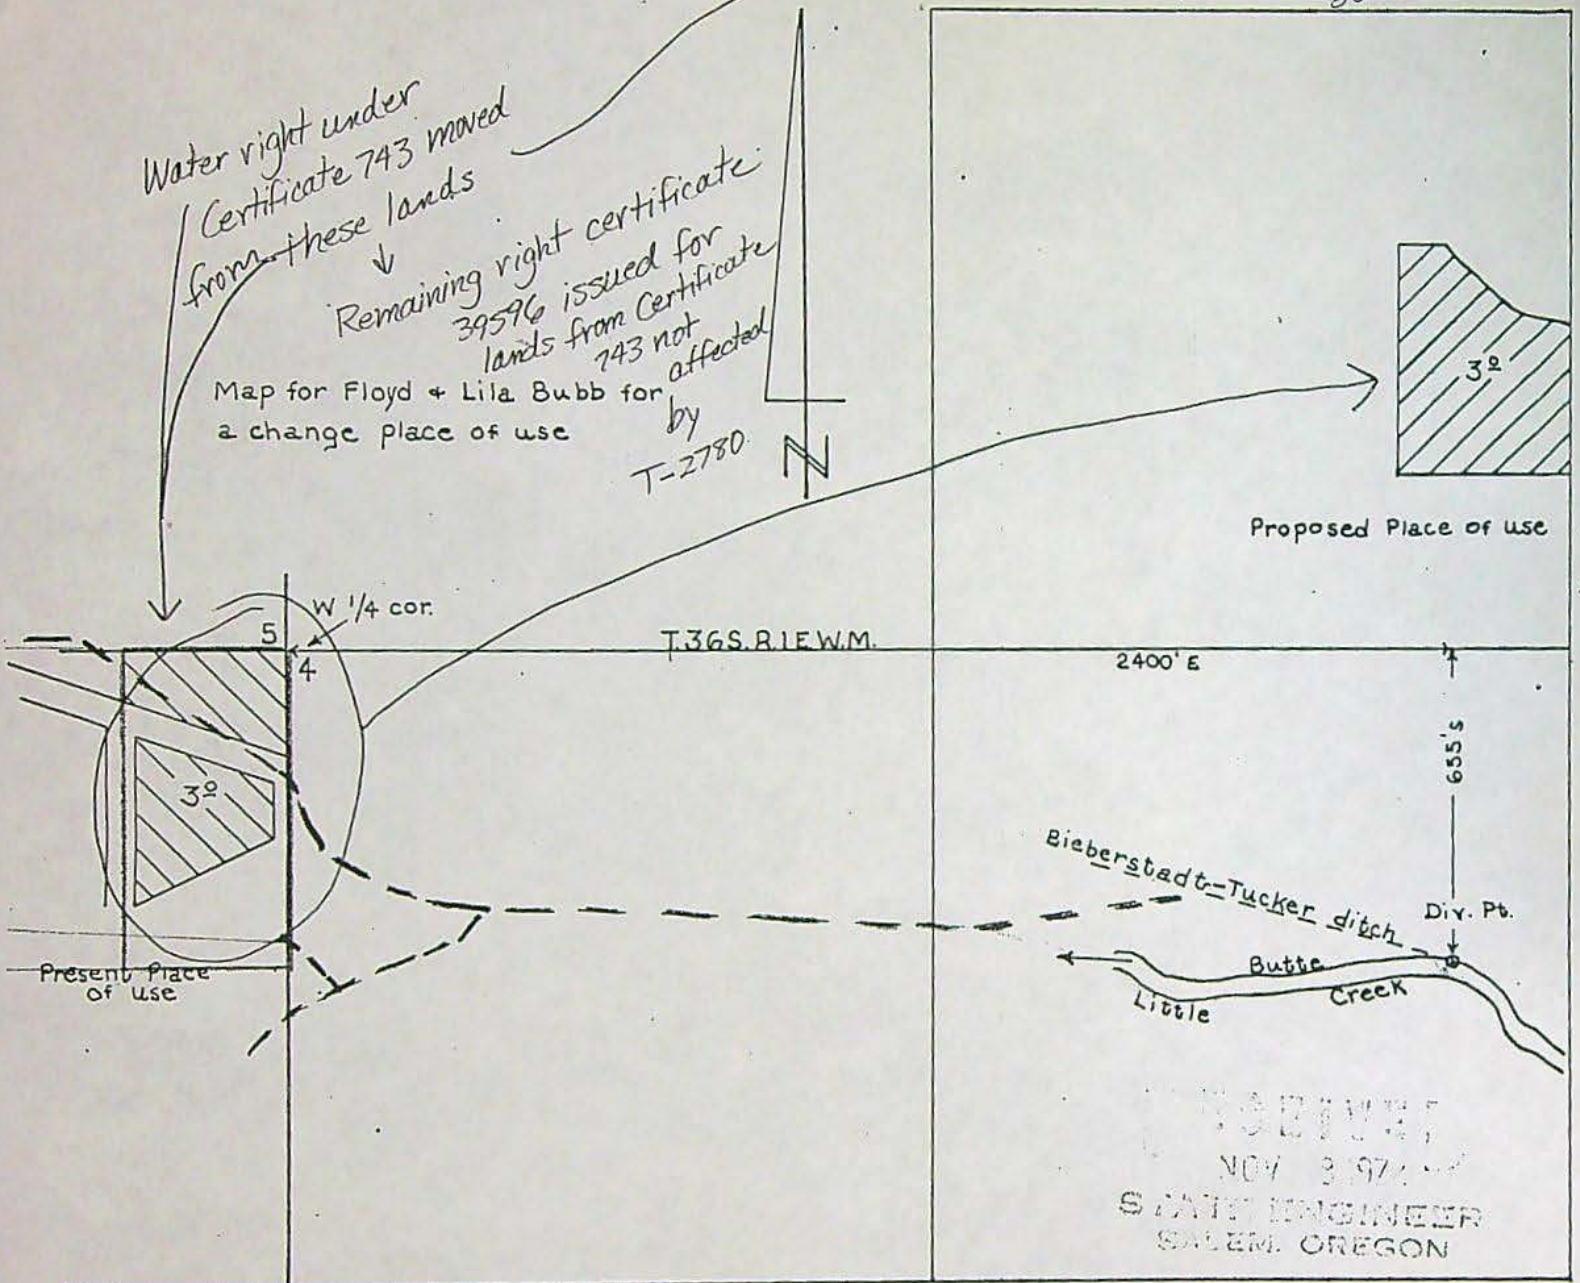 Water right under
Certificate 743 moved
from these lands
Remaining right certificate
39596 issued for
lands from Certificate
743 not
affected
by
T-2780
Map for Floyd & Lila Bubb for
a change place of use
N
3º
Proposed Place of use
W 1/4 cor.
5
4
T.36S.R.1E.W.M.
2400' E
655's
3º
Bieberstadt-Tucker ditch
Div. Pt.
Butte
Little
Creek
Present Place
of use
NOV
STATE ENGINEER
SALEM. OREGON